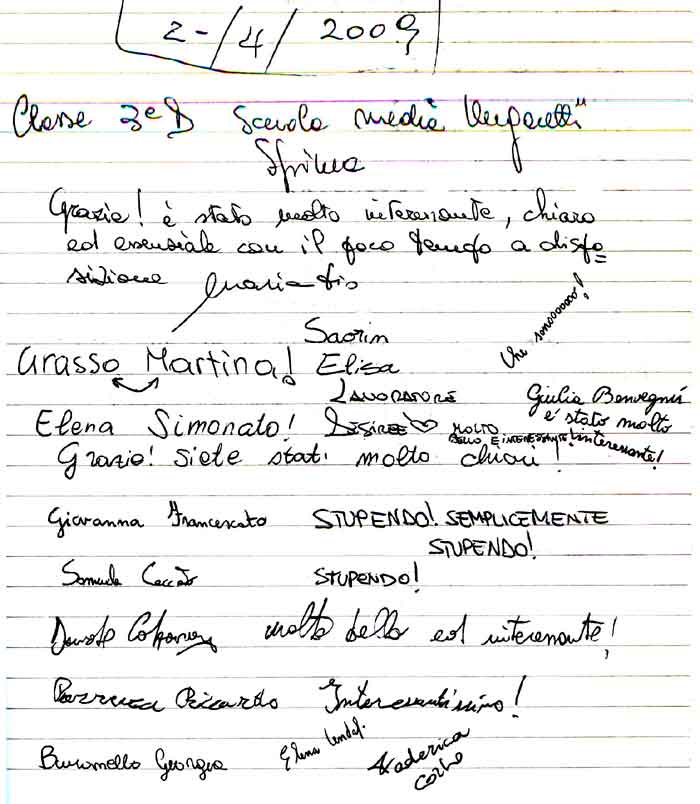 2-/4/2009
Classe 3ª D Scuola media "Ungaretti"
Grazie! è stato molto interessante, chiaro
ed essenziale con il poco tempo a dispo=
sizione
Che sonoooooo!
Grasso Martina! Saorin
Elisa
LAVORATORE
Giulia Benvegnù
è stato molto
interessante!
Elena Simonato! DESIREE MOLTO
BELLO E INTERESSANTE!
Grazie! Siete stati molto chiari!
Giovanna Francescato STUPENDO! SEMPLICEMENTE
STUPENDO!
STUPENDO!
molto bello ed interessante!
Riccardo Interessantissimo!
Georgia Elena
Federica